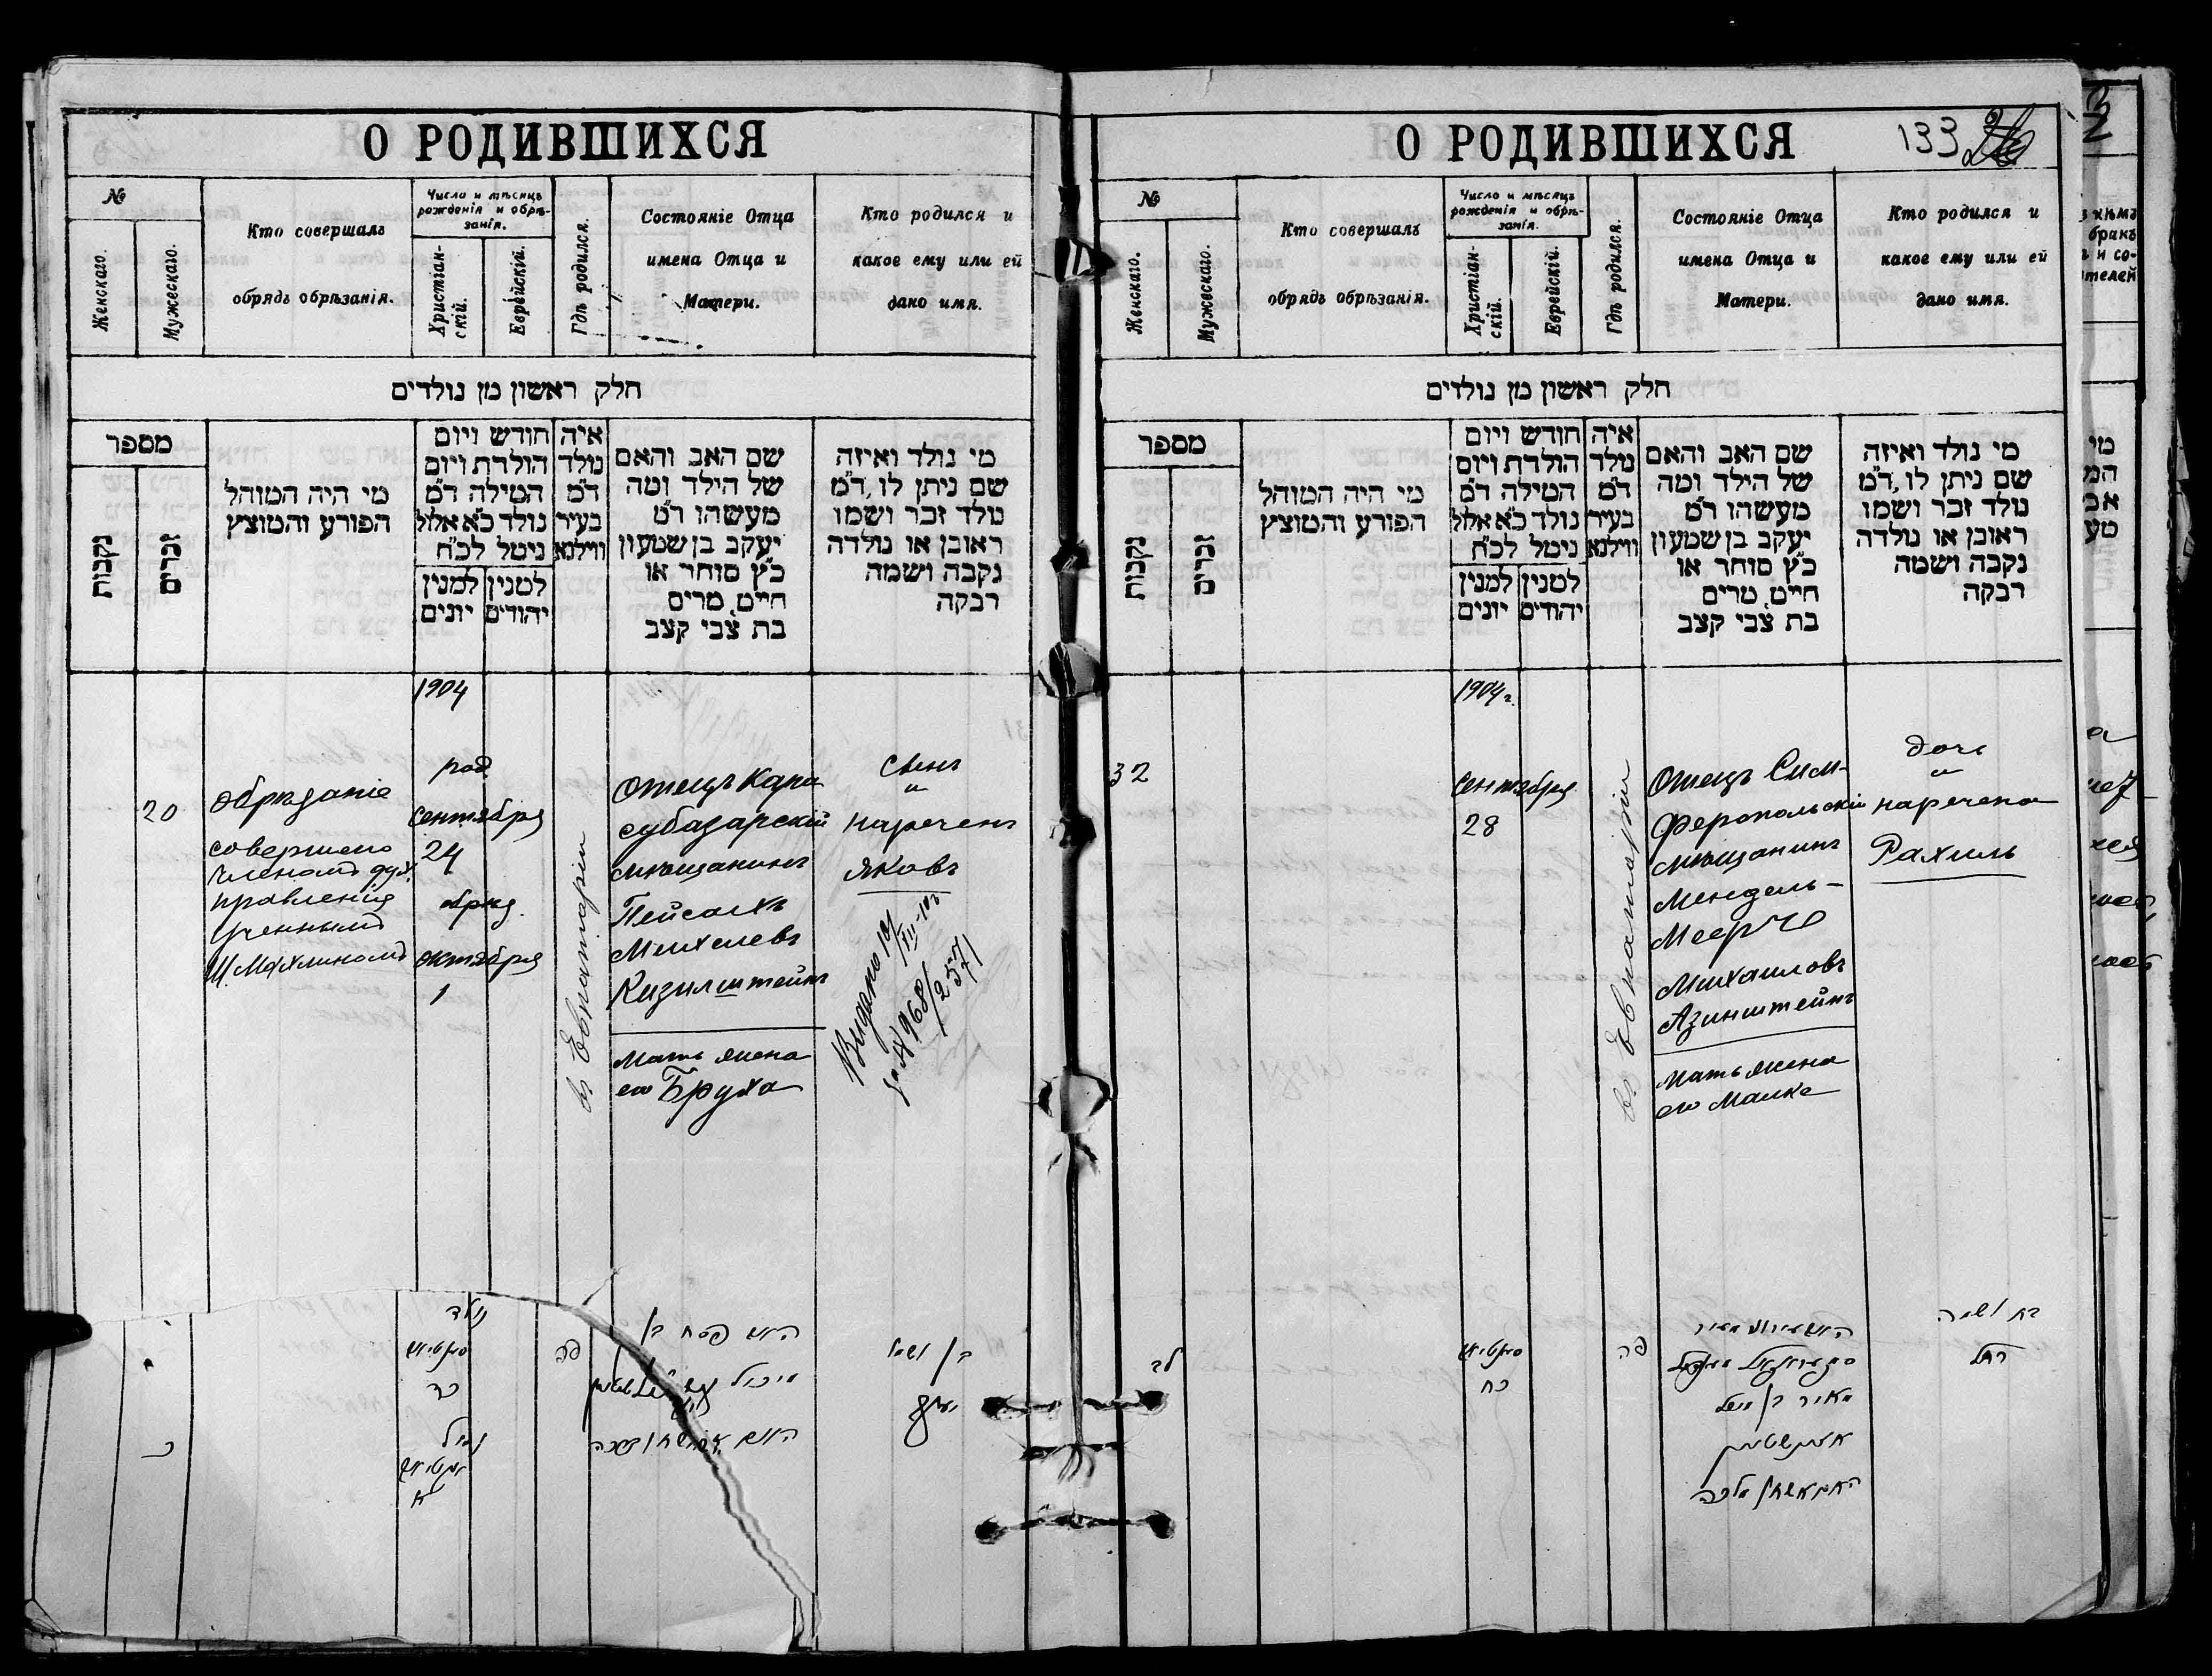 О РОДИВШИХСЯ
№
Женскаго.
Мужескаго.
Кто совершалъ
обрядъ обрѣзанія.
Число и мѣсяцъ
рожденія и обрѣ-
занія.
Христіан-
скій.
Еврейскій.
Гдѣ родился.
Состояніе Отца
имена Отца и
Матери.
Кто родился и
какое ему или ей
дано имя.
חלק ראשון מן נולדים
מספר
נקבות
זכרים
מי היה המוהל
הפורע והמוצץ
חודש ויום
הולדת ויום
המילה ד״מ
נולד כ״א אלול
נימל לכ״ח
למנין
יהודים
למנין
יונים
איה
נולד
ד״מ
בעיר
ווילנא
שם האב והאם
של הילד ומה
מעשהו ד״מ
יעקב בן שמעון
כ״ץ סוחר או
חייט, מרים
בת צבי קצב
מי נולד ואיזה
שם ניתן לו, ד״מ
נולד זכר ושמו
ראובן או נולדה
נקבה ושמה
רבקה
1904
20
обрѣзаніе
совершено
членомъ дух.
правленія
ученымъ
Ш. Махлиномъ
род
сентября
24
обрѣз.
октября
1
въ Евпаторіи
Отецъ Кара
субазарскій
мѣщанинъ
Пейсахъ
Михелевъ
Кизилштейнъ
мать жена
его Бруха
сынъ
и
нареченъ
Яковъ
Выдано 10/XII-10г
за № 968/
2571
נולד
כד
נימול
א
פה
האב פסח בן
מיכל
בן ושמו
יעקב
כ
О РОДИВШИХСЯ
133
№
Женскаго.
Мужескаго.
Кто совершалъ
обрядъ обрѣзанія.
Число и мѣсяцъ
рожденія и обрѣ-
занія.
Христіан-
скій.
Еврейскій.
Гдѣ родился.
Состояніе Отца
имена Отца и
Матери.
Кто родился и
какое ему или ей
дано имя.
חלק ראשון מן נולדים
מספר
נקבות
זכרים
מי היה המוהל
הפורע והמוצץ
חודש ויום
הולדת ויום
המילה ד״מ
נולד כ״א אלול
נימל לכ״ח
למנין
יהודים
למנין
יונים
איה
נולד
ד״מ
בעיר
ווילנא
שם האב והאם
של הילד ומה
מעשהו ד״מ
יעקב בן שמעון
כ״ץ סוחר או
חייט, מרים
בת צבי קצב
מי נולד ואיזה
שם ניתן לו, ד״מ
נולד זכר ושמו
ראובן או נולדה
נקבה ושמה
רבקה
1904 г.
32
сентября
28
въ Евпаторіи
Отецъ Сим-
феропольскій
мѣщанинъ
Мендель-
Мееръ
Михаиловъ
Азинштейнъ
мать жена
его Малке
дочь
и
наречена
Рахиль
לב
כח
פה
מאיר בן
בת ושמה
רחל